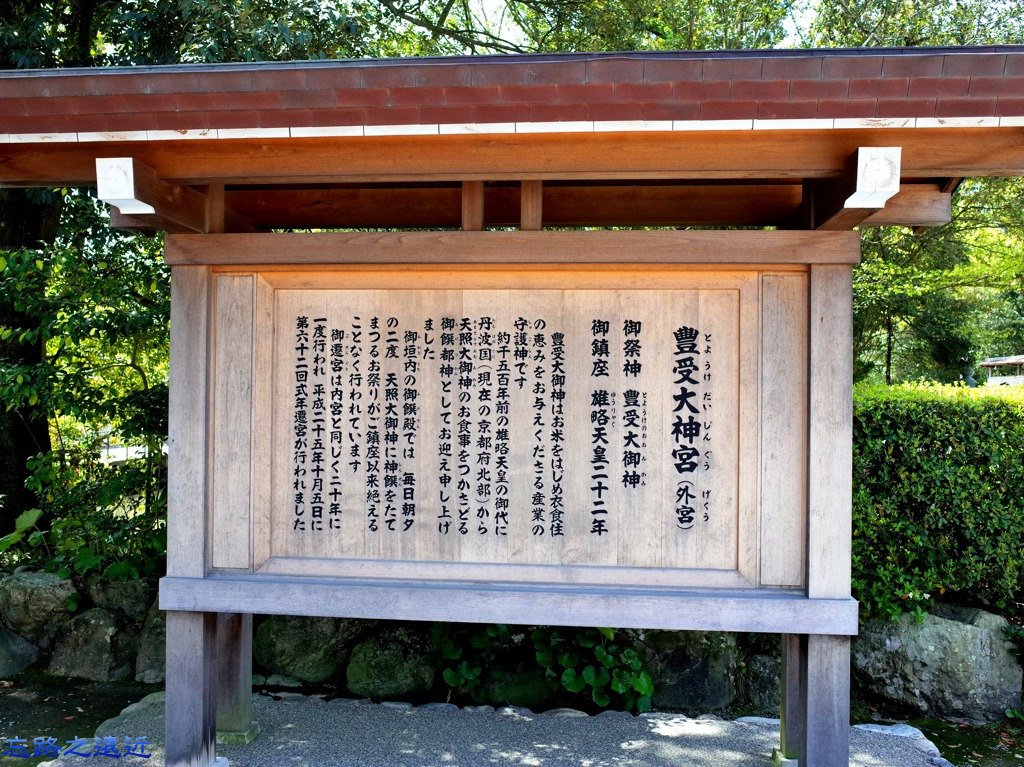 豊受大神宮（外宮）
とようけだいじんぐう　げくう
御祭神　豊受大御神
とようけのおおみかみ
御鎮座　雄略天皇二十二年
ゆうりゃく
豊受大御神はお米をはじめ衣食住
の恵みをお与えくださる産業の
守護神です
約千五百年前の雄略天皇の御代に
丹波国（現在の京都府北部）から
天照大御神のお食事をつかさどる
御饌都神としてお迎え申し上げ
ました
御垣内の御饌殿では　毎日朝夕
の二度　天照大御神に神饌をたて
まつるお祭りがご鎮座以来絶える
ことなく行われています
御遷宮は内宮と同じく二十年に
一度行われ　平成二十五年十月五日に
第六十二回式年遷宮が行われました
忘路之遠近